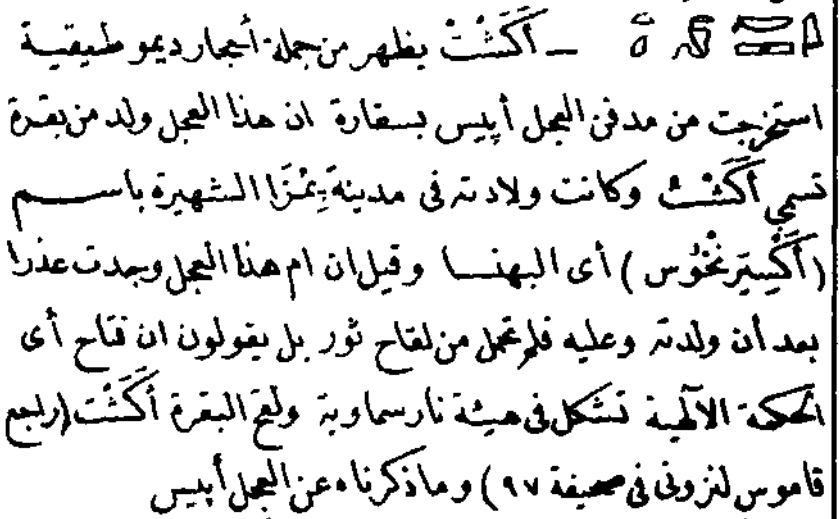 ـ أَكَشْتْ يظهر من جملة أحجار ديموطيقية
استخرجت من مدفن العجل أپيس بسقارة ان هذا العجل ولد من بقرة
تسمى أَكَشْتْ وكانت ولادته فى مدينة پِمْزَا الشهيرة باسم
(أُكْسِيَرِنْخُوس) أى البهنسا وقيل ان ام هذا العجل وجدت عذرا
بعد أن ولدته وعليه فلم تحمل من لقاح ثور بل يقولون ان فتاح أى
الحكمة الآلهية تشكل فى هيئة نار سماوية ولقح البقرة أَكَشْت (راجع
قاموس لنزونى فى صحيفة ٩٧) وما ذكرناه عن العجل أپيس